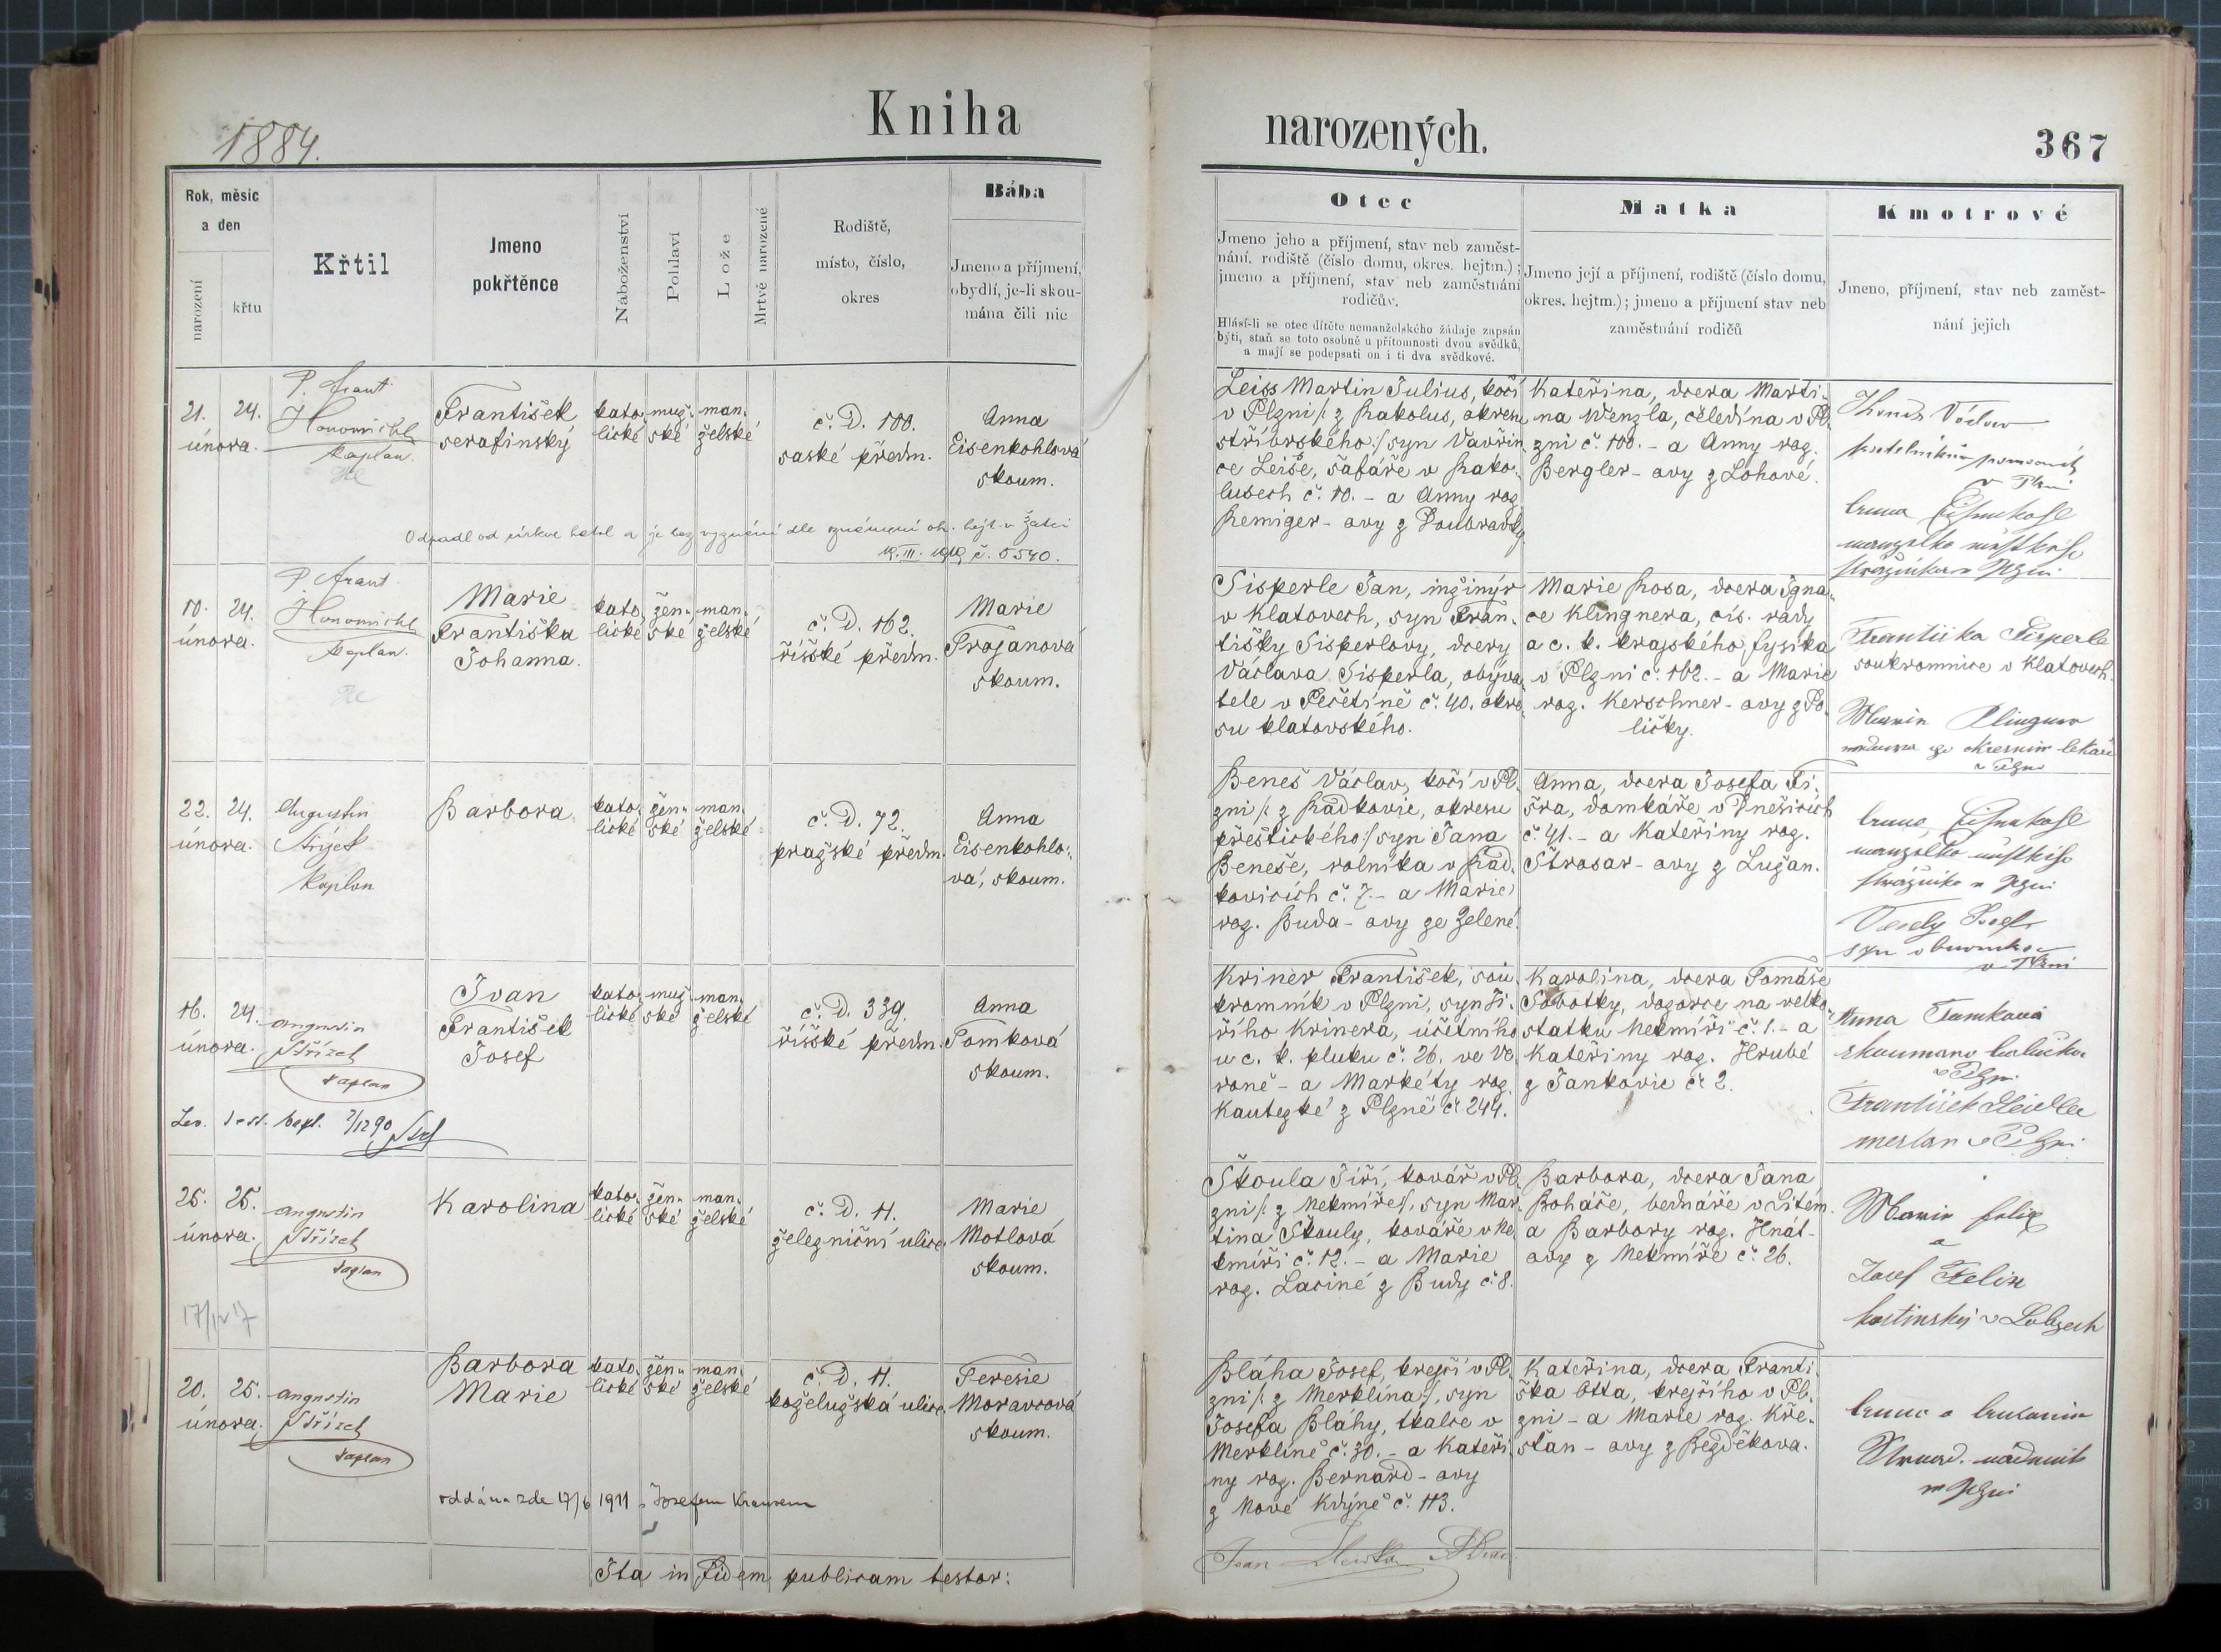 Kniha
narozených.
1884.
367
Rok, měsíc
a den
narození
křtu
Křtil
Jmeno
pokřtěnce
Náboženství
Pohlaví
Lože
Mrtvě narozené
Rodiště,
místo, číslo,
okres
Bába
Jmeno a příjmení,
obydlí, je-li skou-
mána čili nic
Otec
Jmeno jeho a příjmení, stav neb zaměst-
nání, rodiště (číslo domu, okres. hejtm.);
jmeno a příjmení, stav neb zaměstnání
rodičův.
Hlásí-li se otec dítěte nemanželského žádaje zapsán
býti, staň se toto osobně u přítomnosti dvou svědků,
a mají se podepsati on i ti dva svědkové.
Matka
Jmeno její a příjmení, rodiště (číslo domu,
okres. hejtm.); jmeno a příjmení stav neb
zaměstnání rodičů
Kmotrové
Jmeno, příjmení, stav neb zaměst-
nání jejich
21. 24.
února.
P. Frant
Honomichl
kaplan.
František
serafinský
kato-
lické
muž-
ské
man-
želské
č. D. 100.
saské předm.
Anna
Eisenkohlová
skoum.
Leiss Martin Julius, kočí
v Plzni /: z Rakolus, okresu
stříbrského:/ syn Vavřin-
ce Leiše, šafáře v Rako-
lusech č. 10. - a Anny roz.
Remiger-ovy z Doubravky.
Kateřina, dcera Marti-
na Wenzla, čeledína v Pl-
zni č. 100. - a Anny roz.
Bergler-ovy z Lohové.
Václav
v Plzni
Odpadl od církve katol a je bez vyznání dle oznámení ok. hejt. v Žatci
12. III. 1919 č. 5540.
10. 24.
února.
P. Frant
Honomichl
kaplan.
Marie
Františka
Johanna.
kato-
lické
žen-
ské
man-
želské
č. D. 162.
říšské předm.
Marie
Trojanová
skoum.
Sisperle Jan, inžinýr
v Klatovech, syn Fran-
tišky Sisperlovy, dcery
Václava Sisperla, obýva-
tele v Pečetíně č. 40. okre-
su klatovského.
Marie Rosa, dcera Igna-
ce Klingnera, cís. rady
a c. k. krajského fysika
v Plzni č. 162. - a Marie
roz. Kerschner-ovy z Po-
ličky.
Františka Sisperle
soukromnice v Klatovech.
22. 24.
února.
Augustin
Střízek
kaplan
Barbora
kato-
lické
žen-
ské
man-
želské
č. D. 72.
pražské předm.
Anna
Eisenkohlo-
vá, skoum.
Beneš Václav, kočí v Pl-
zni /: z Radkovic, okresu
přeštického:/ syn Jana
Beneše, rolníka v Rad-
kovicích č. 7. - a Marie
roz. Buda-ovy ze Zelené.
Anna, dcera Josefa Fi-
šra, domkáře v Dnešicích
č. 41. - a Kateřiny roz.
Štrosar-ovy z Lužan.
Veselý Josef
syn obuvníka
v Plzni
16. 24.
února.
Augustin
Střízek
kaplan
Ivan
František
Josef
kato-
lické
muž-
ské
man-
želské
č. D. 339.
říšské předm.
Anna
Tomková
skoum.
Kriner František, sou-
kromník v Plzni, syn Ji-
řího Krinera, účetního
u c. k. pluku č. 26. ve Ve-
roně - a Markéty roz.
Kautezké z Plzně č. 244.
Karolina, dcera Tomáše
Sobotky, dozorce na velko-
statku Nekmíři č. 1. - a
Kateřiny roz. Hrubé
z Jankovic č. 2.
Anna Tomková
zkoumaná babička
v Plzni
František Heidler
v Plzni
25. 25.
února.
Augustin
Střízek
kaplan
Karolina
kato-
lické
žen-
ské
man-
želské
č. D. 11.
železniční ulice
Marie
Motlová
skoum.
Škoula Jiří, kovář v Pl-
zni /: z Nekmíře:/, syn Mar-
tina Škouly, kováře v Ne-
kmíři č. 12. - a Marie
roz. Laciné z Budy č. 8.
Barbora, dcera Jana
Boháře, bednáře v Litém
a Barbory roz. Hnát-
ovy z Nekmíře č. 26.
a
Josef Felix
hostinský v Lobzech
20. 25.
února.
Augustin
Střízek
kaplan
Barbora
Marie
kato-
lické
žen-
ské
man-
želské
č. D. 11.
koželužská ulice
Teresie
Moravcová
skoum.
Bláha Josef, krejčí v Pl-
zni /: z Merklína:/, syn
Josefa Bláhy, tkalce v
Merklíně č. 30. - a Kateři-
ny roz. Bernard-ovy
z Nové Kdýně č. 113.
Kateřina, dcera Franti-
ška Otta, krejčího v Pl-
zni - a Marie roz. Kře-
sťan-ovy z Bezděkova.
oddána zde 17/6 1911 s Josefem Krausem
Ita in fidem publicam testor: